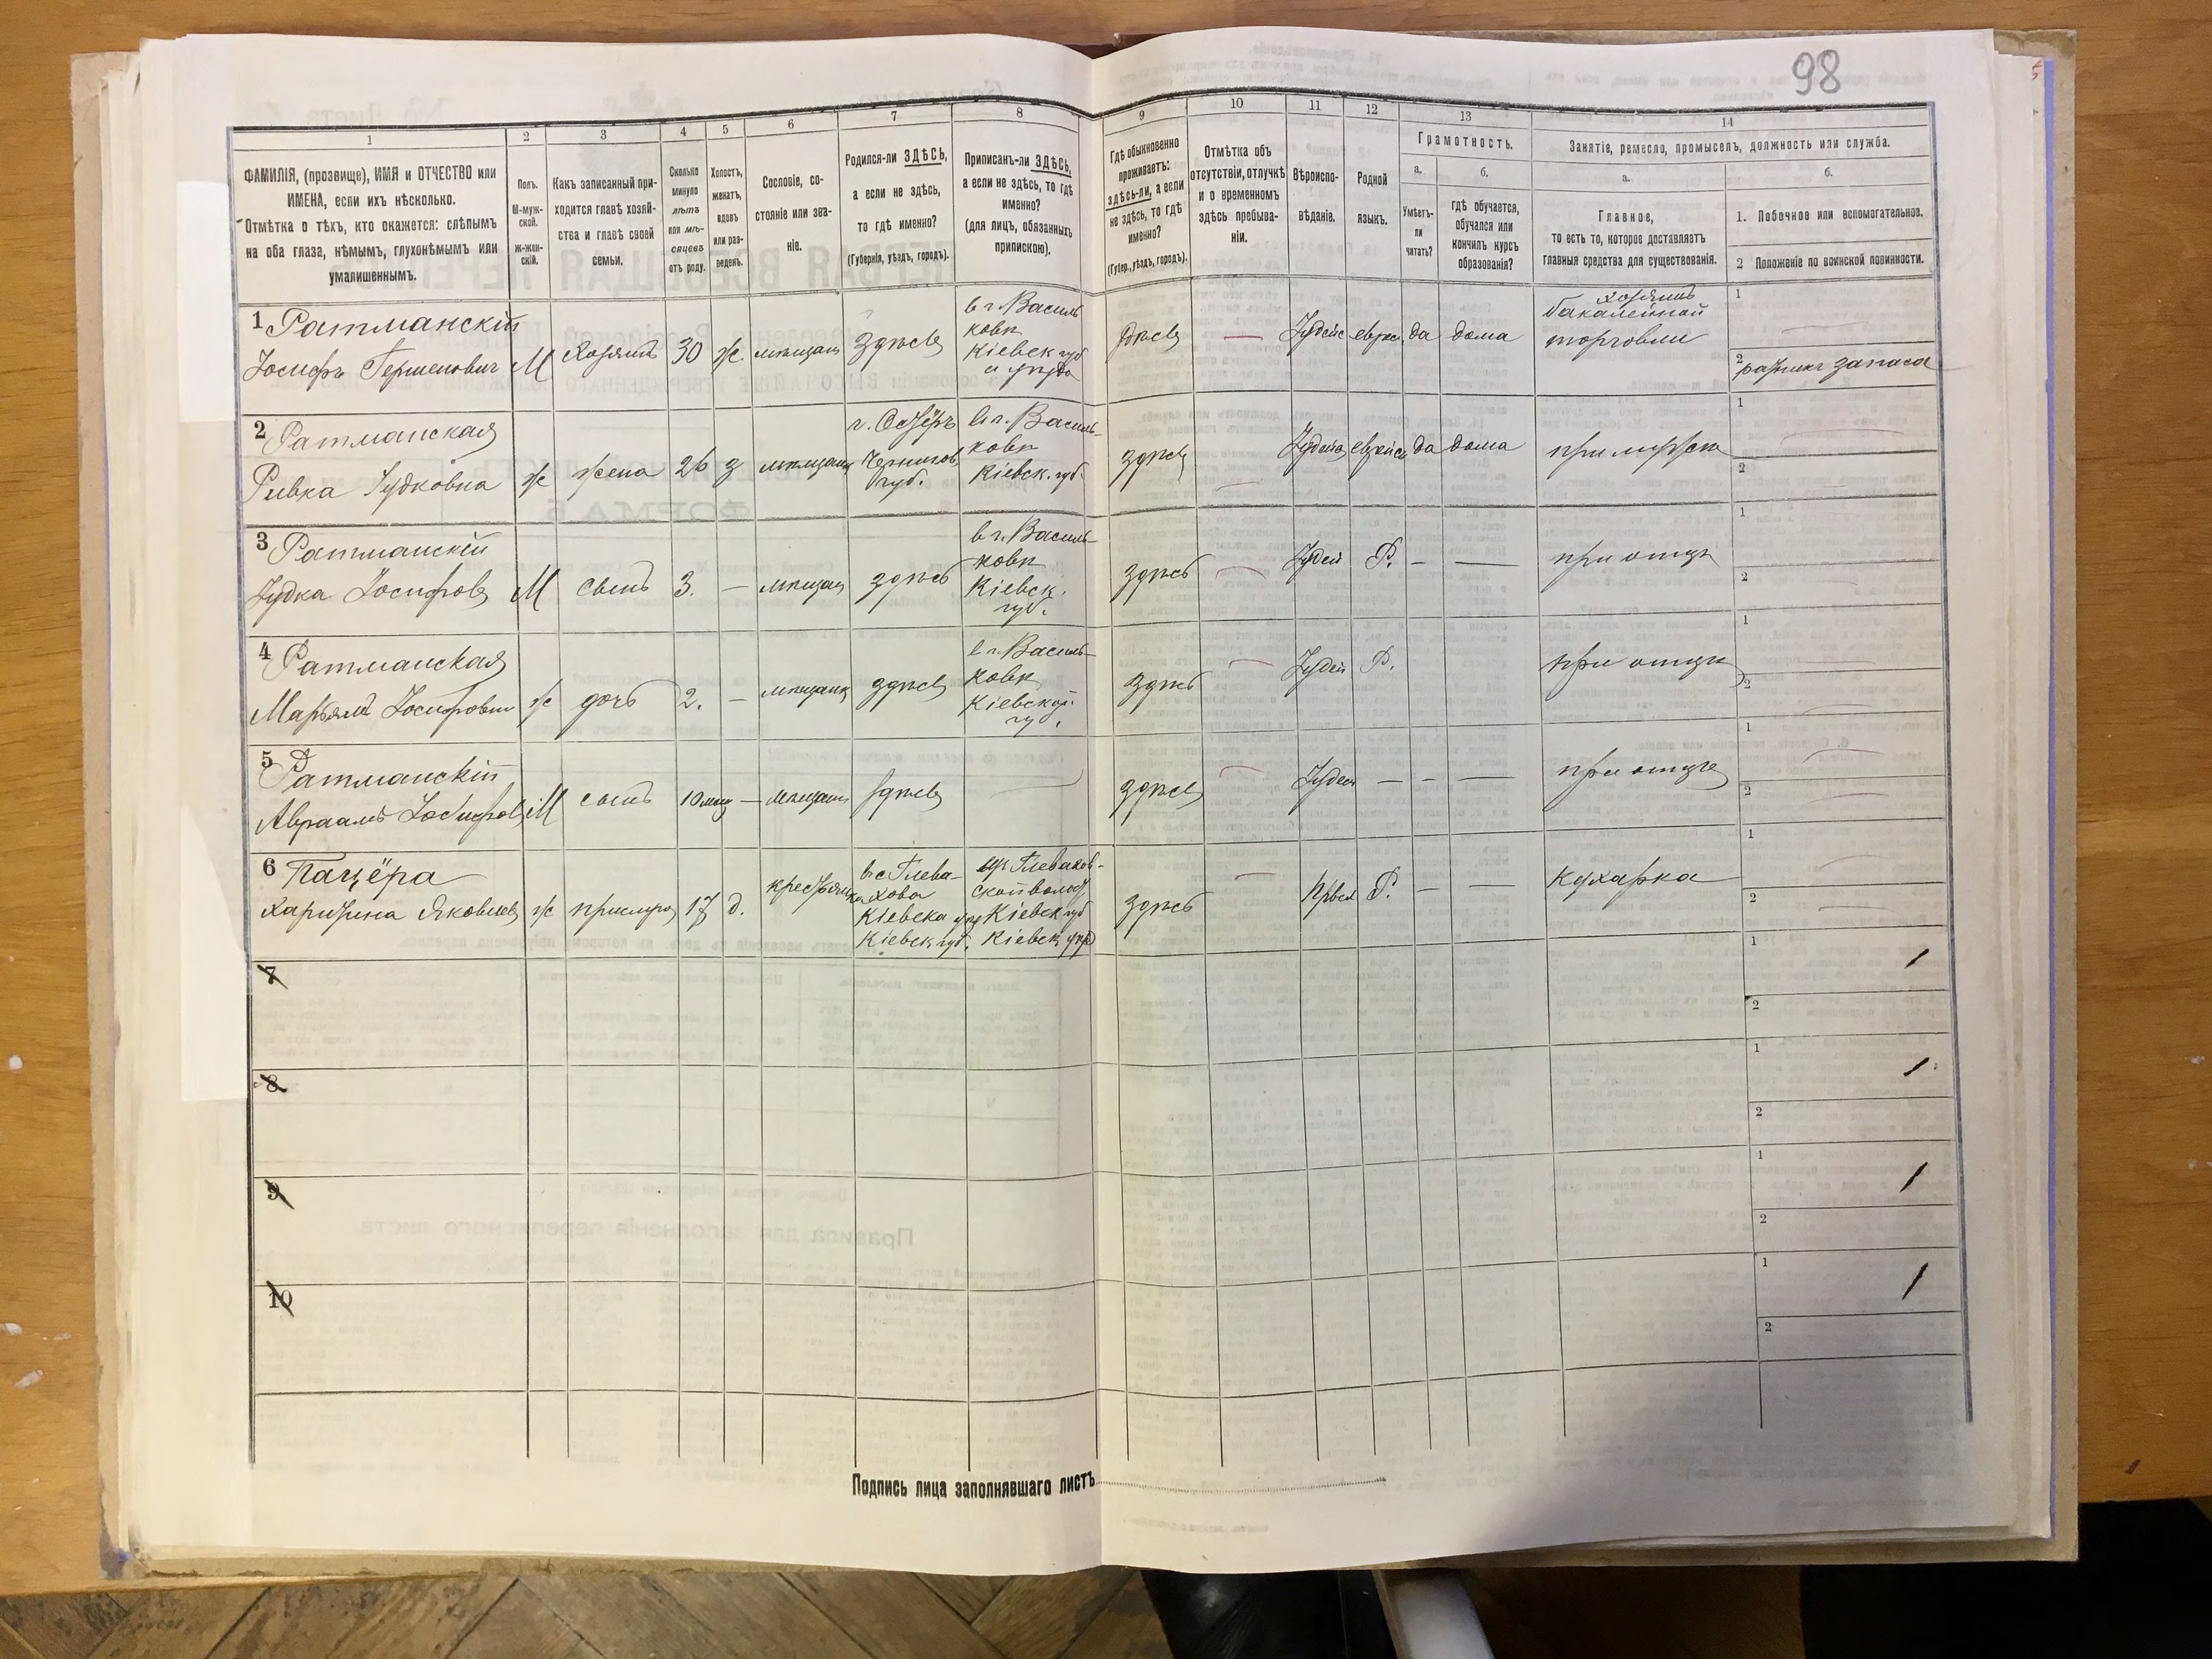 98
1
2
3
4
5
6
7
8
9
10
11
12
13
14
ФАМИЛІЯ, (прозвище), ИМЯ и ОТЧЕСТВО или
ИМЕНА, если ихъ нѣсколько.
Отмѣтка о тѣхъ, кто окажется: слѣпымъ
на оба глаза, нѣмымъ, глухонѣмымъ или
умалишеннымъ.
Полъ.
М-муж-
ской.
Ж-жен-
скій.
Какъ записанный при-
ходится главѣ хозяй-
ства и главѣ своей
семьи.
Сколько
минуло
лѣтъ
или мѣ-
сяцевъ
отъ роду.
Холостъ,
женатъ,
вдовъ
или раз-
веденъ.
Сословіе, со-
стояніе или зва-
ніе.
Родился-ли ЗДѢСЬ,
а если не здѣсь,
то гдѣ именно?
(Губернія, уѣздъ, городъ).
Приписанъ-ли ЗДѢСЬ,
а если не здѣсь, то гдѣ
именно?
(для лицъ, обязанныхъ
припискою).
Гдѣ обыкновенно
проживаетъ:
здѣсь-ли, а если
не здѣсь, то гдѣ
именно?
(Губер., уѣздъ, городъ).
Отмѣтка объ
отсутствіи, отлучкѣ
и о временномъ
здѣсь пребыва-
ніи.
Вѣроиспо-
вѣданіе.
Родной
языкъ.
Грамотность.
а.
б.
Умѣетъ-
ли
читать?
гдѣ обучается,
обучался или
кончилъ курсъ
образованія?
Занятіе, ремесло, промыселъ, должность или служба.
а.
б.
Главное,
то есть то, которое доставляетъ
главныя средства для существованія.
1. Побочное или вспомогательное.
2 Положеніе по воинской повинности.
1 Ратманскій
Іосифъ Гершеновичъ
М
Хозяинъ
30
ж.
мѣщан
здѣсь
в г. Василь
ковѣ
Кіевск губ
и уѣзда
здѣсь
—
Іудейс
еврей
да
дома
хозяинъ
бакалейной
торговли
1
2 ратник запаса
2 Ратманская
Ривка Іудковна
ж
жена
26
з
мѣщанк
г. Остёръ
Чернигов
губ.
в г. Василь-
ковѣ
Кіевск. губ.
здѣсь
Іудейс
еврейск
да
дома
при мужѣ
1
2
3 Ратманскій
Іудка Іосифовъ
М
сынъ
3.
—
мѣщан
здѣсь
в г. Василь-
ковѣ
Кіевск.
губ.
здѣсь
Іудей
Р.
—
—
при отцѣ
1
2
4 Ратманская
Марьямъ Іосифовн
ж
дочь
2.
—
мѣщанк
здѣсь
в г. Василь-
ковѣ
Кіевской
губ.
здѣсь
Іудей
Р.
при отцѣ
1
2
5 Ратманскій
Авраамъ Іосифовъ
М
сынъ
10 мѣц
—
мѣщан
здѣсь
здѣсь
Іудей
—
—
—
при отцѣ
1
2
6 Пацёра
Харитина Яковлев
ж
прислуга
17
д.
крестьянка
в с Глева-
хова
Кіевска уѣз
Кіевск губ.
Глевахов-
ской волос
Кіевск губ
Кіевск уѣзд
здѣсь
Р.
—
—
кухарка
1
2
7
1
2
8
1
2
9
1
2
10
1
2
Подпись лица заполнявшаго листъ